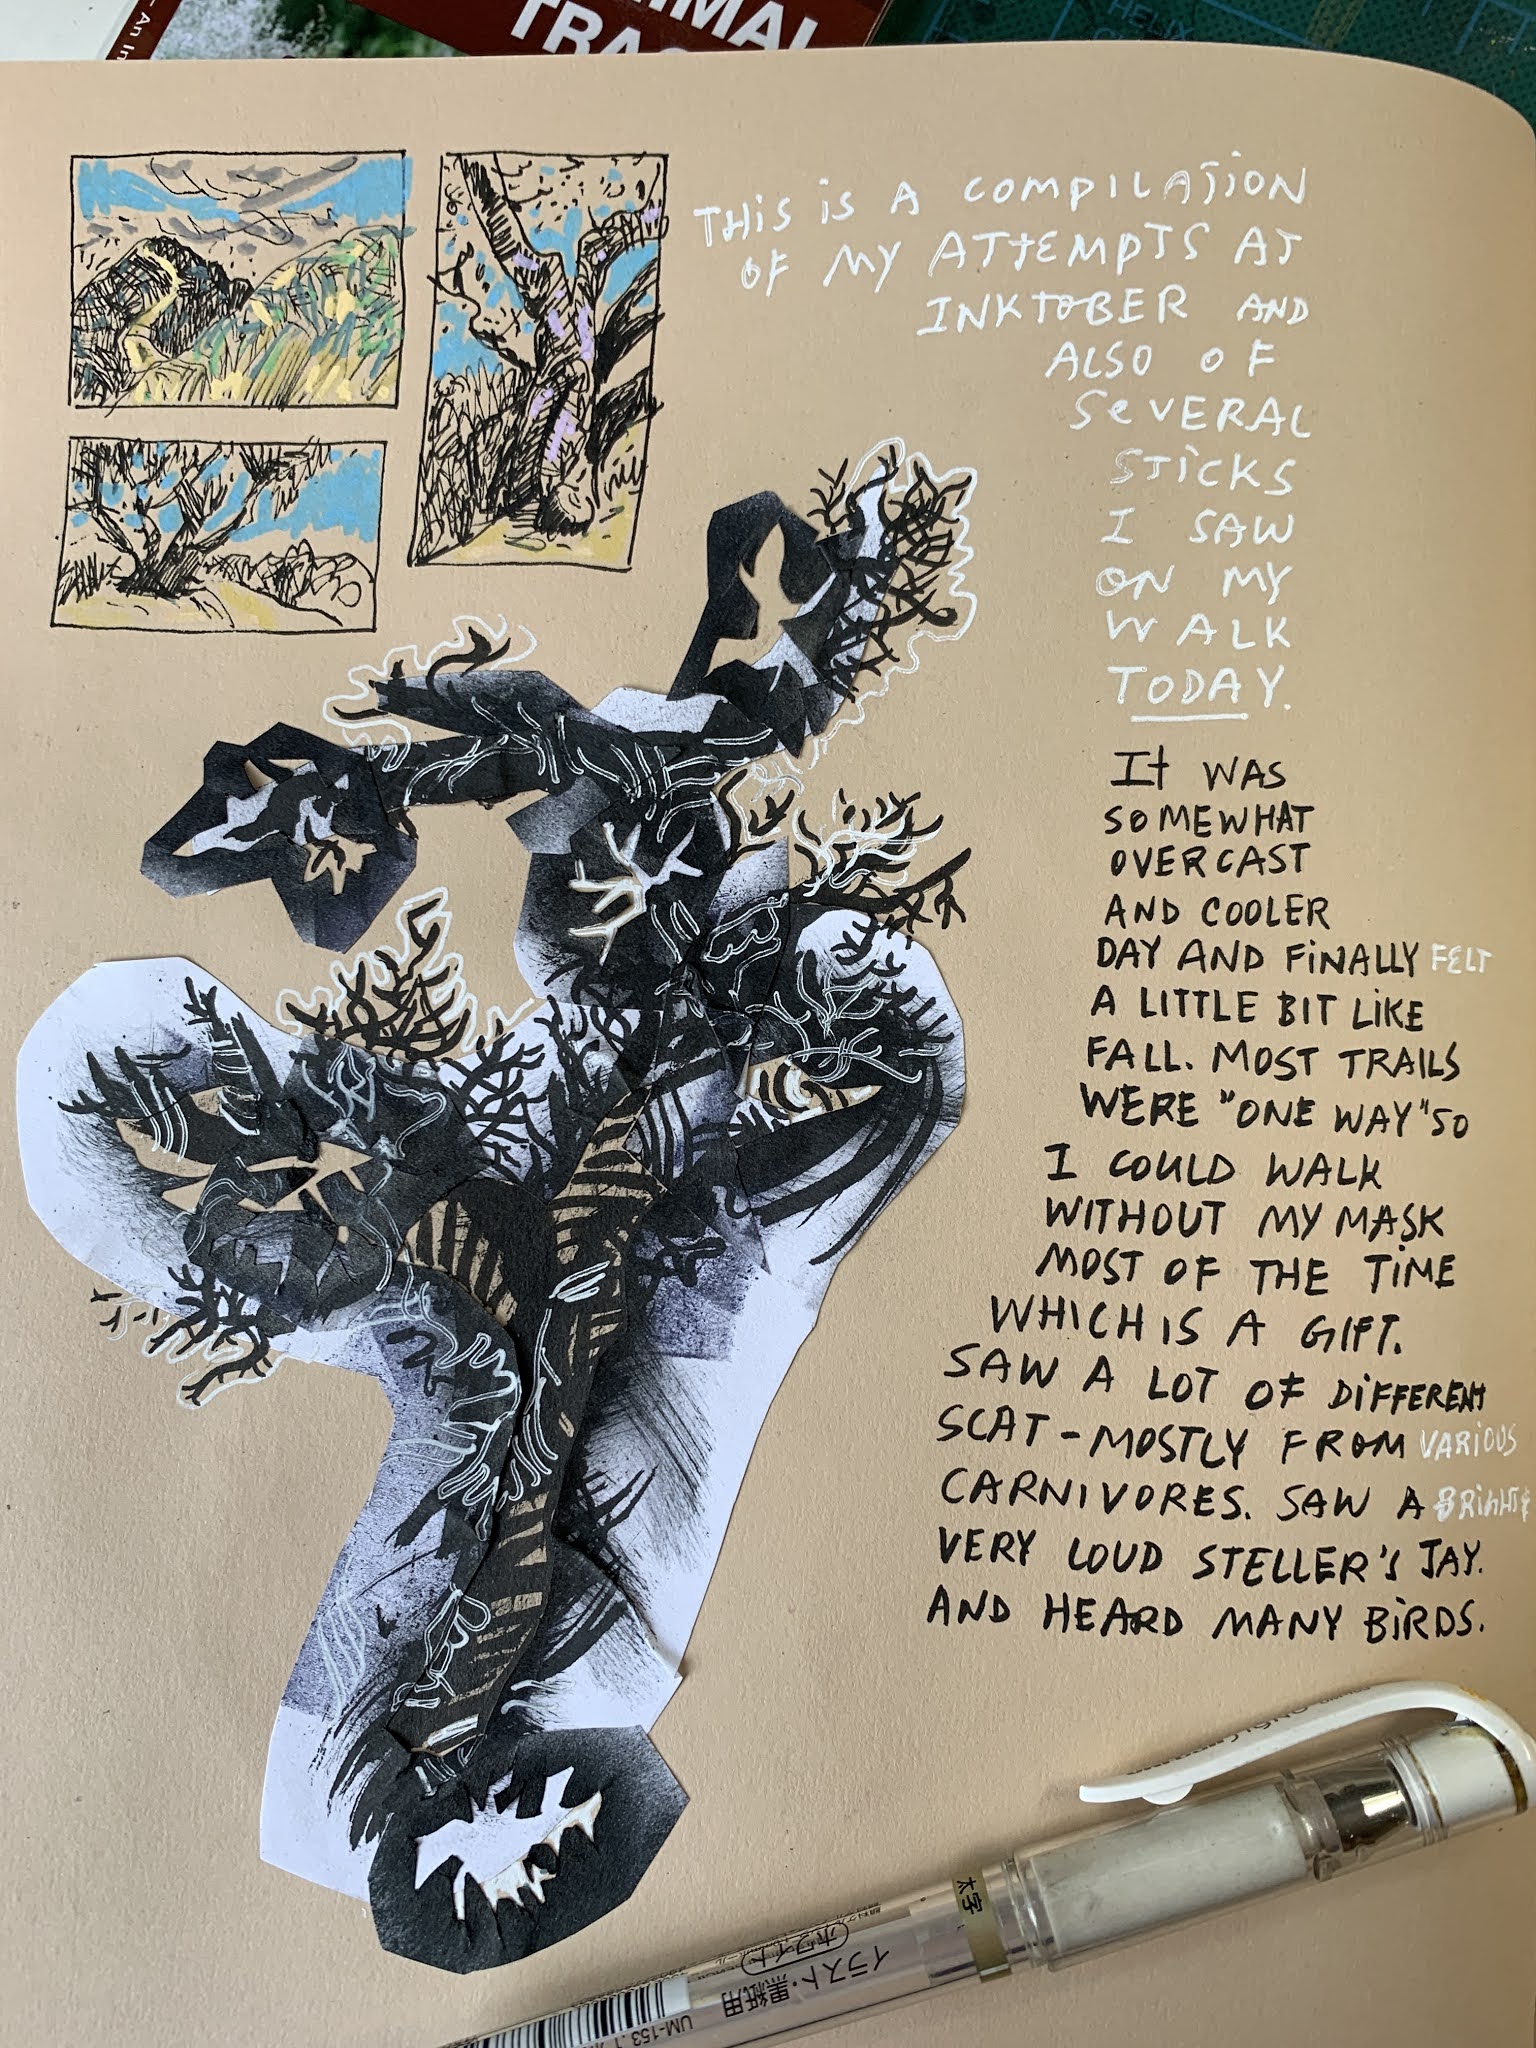 An In
IMAL
TRAC
HELIX
THIS IS A COMPILATION
OF MY ATTEMPTS AT
INKTOBER AND
ALSO OF
SEVERAL
STICKS
I SAW
ON MY
WALK
TODAY.
It WAS
SOMEWHAT
OVERCAST
AND COOLER
DAY AND FINALLY FELT
A LITTLE BIT LIKE
FALL. MOST TRAILS
WERE "ONE WAY" SO
I COULD WALK
WITHOUT MY MASK
MOST OF THE TIME
WHICH IS A GIFT.
SAW A LOT OF DIFFERENT
SCAT - MOSTLY FROM VARIOUS
CARNIVORES. SAW A BRIGHT &
VERY LOUD STELLER'S JAY.
AND HEARD MANY BIRDS.
太字
ホワイト
イラスト・黒紙用
UM-153